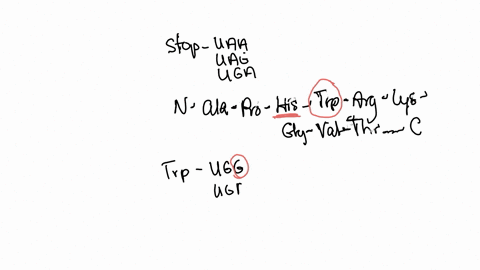 Stop - UAA
UAG
UGA
N - Ala - Pro - His - Trp - Arg - Lys -
Gly - Val - Thr - C
Trp - UGG
UGA